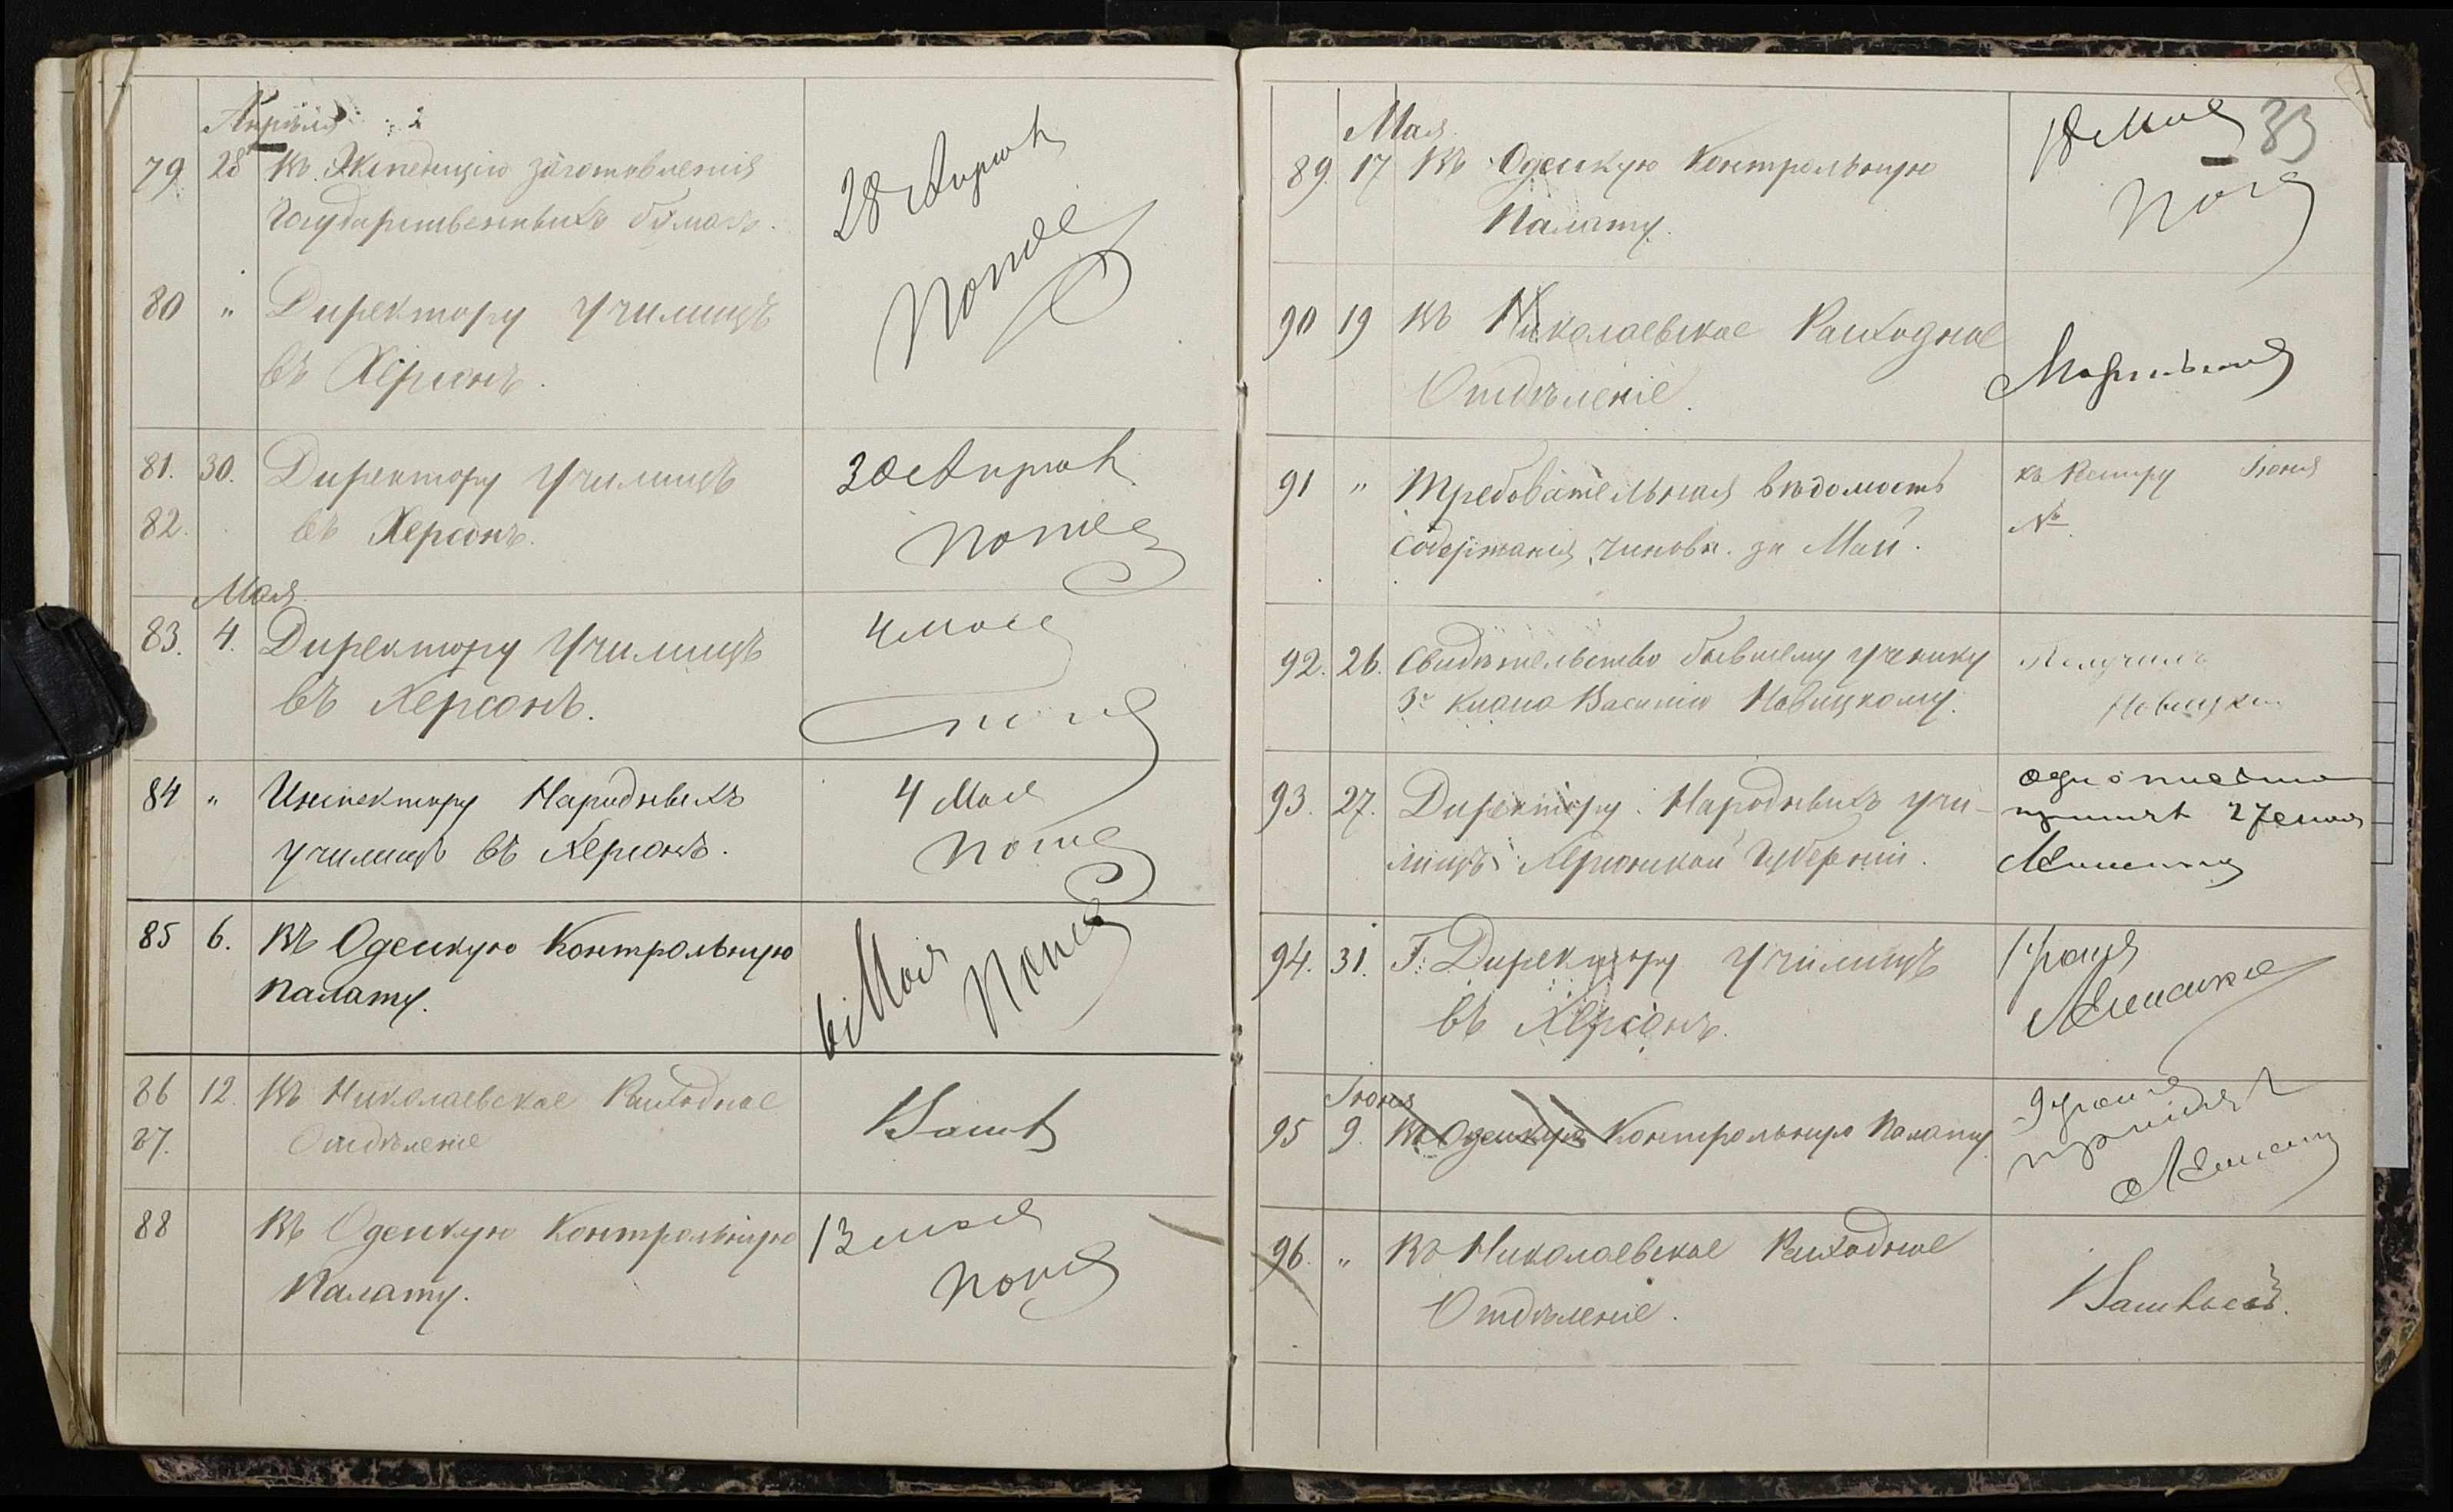 Апрѣля
79 28 Въ Экспедицію заготовленія
государственныхъ бумагъ.
28 Апрѣля
80 " Директору училищъ
въ Херсонъ.
81. 30. Директору училищъ
82. въ Херсонъ.
30 Апрѣля
Мая
83. 4. Директору училищъ
въ Херсонъ.
4 мая
84 " Инспектору Народныхъ
училищъ въ Херсонъ.
4 Мая
85 6. Въ Одесскую Контрольную
Палату.
6 Мая
86 12. Въ Николаевское Расходное
87. Отдѣленіе
88 Въ Одесскую Контрольную
Палату.
13 мая
33
Мая
89 17 Въ Одесскую Контрольную
Палату.
18 Мая
90 19 Въ Николаевское Расходное
Отдѣленіе.
91 " Требовательная вѣдомость
содержанія чиновн. за Май.
Іюня
№
92. 26. Свидѣтельство бывшему ученику
3го класса Василію Новицкому.
Получилъ
Новицкій
93. 27. Директору Народныхъ учи-
лищъ Херсонской Губерніи.
27 мая
94. 31. Г. Директору училищъ
въ Херсонъ.
1 іюня
Іюня
95 9. Въ Одесскую Контрольную Палату
9 іюня
96. " Въ Николаевское Расходное
Отдѣленіе.